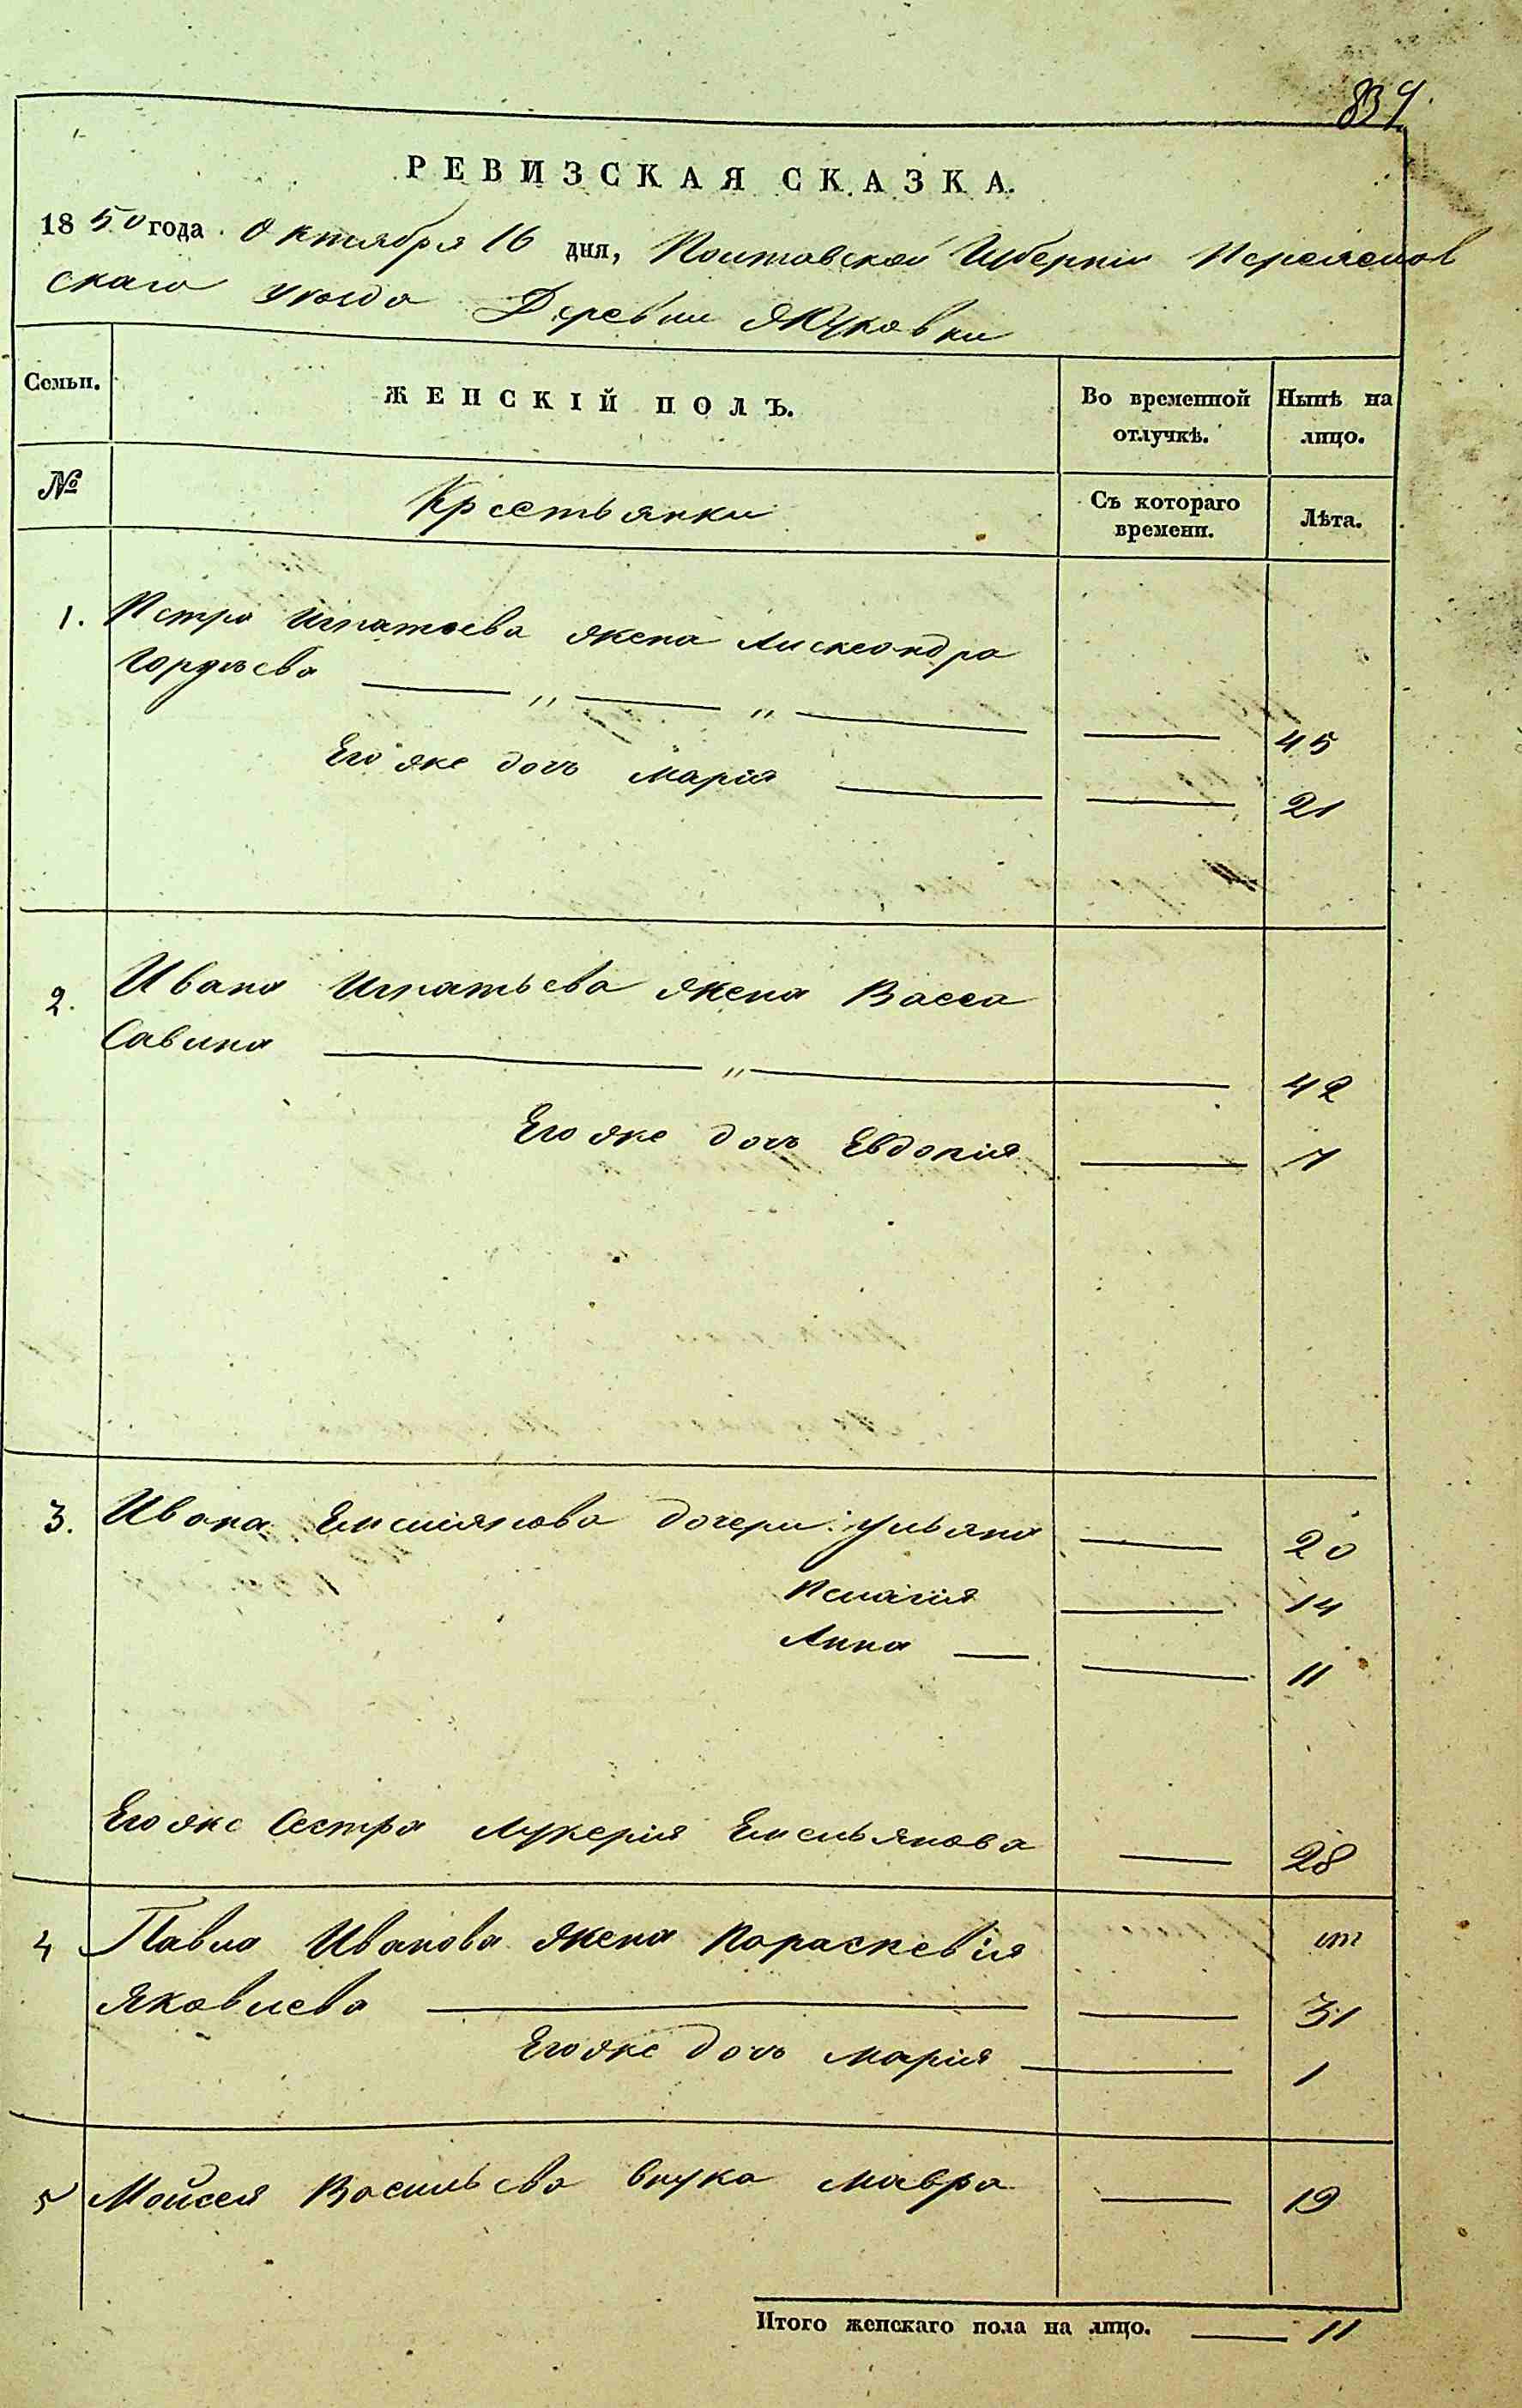 839.
РЕВИЗСКАЯ СКАЗКА.
1850 года Октября 16 дня, Полтавской Губерніи Переяслов
скаго уезда Деревни
Семьи.
ЖЕНСКІЙ ПОЛЪ.
Во временной отлучкѣ.
Нынѣ на лицо.
№
Крестьянки
Съ котораго времени.
Лѣта.
1. Петра Игнатьева жена Александра
Гордѣева — „ — „ — — 45
Его же дочь Марія — — 21
2. Ивана Игнатьева жена Васса
Савина — „ — 42
Его же дочь Евдокія — 7
3. Ивана Емельянова дочери: Ульяна — 20
Пелагія — 14
Анна — — 11
Его же Сестра Лукерія Емельянова — 28
4 Павла Иванова жена Параскевія
Яковлева — — 31
Его же дочь Марія — 1
5 Мойсея Васильева внука Мавра — 19
Итого женскаго пола на лицо. — 11